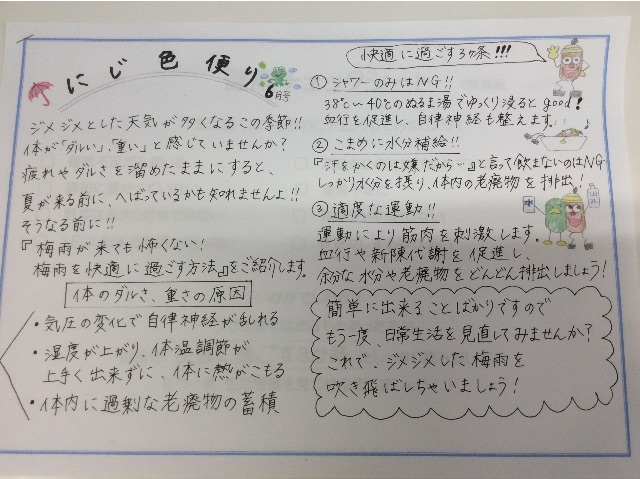 にじ色便り
6月号
ジメジメとした天気が多くなるこの季節!!
体が「ダルい」「重い」と感じていませんか？
疲れやダルさを溜めたままにすると、
夏が来る前に、へばっているかも知れませんよ!!
そうなる前に!!
『梅雨が来ても怖くない!
梅雨を快適に過ごす方法』をご紹介します。
体のダルさ、重さの原因
・気圧の変化で自律神経が乱れる
・湿度が上がり、体温調節が
上手く出来ずに、体に熱がこもる
・体内に過剰な老廃物の蓄積
快適に過ごす3ヶ条!!!
① シャワーのみはNG!!
38℃〜40℃のぬるま湯でゆっくり浸ると good!
血行を促進し、自律神経も整えます。
② こまめに水分補給!!
『汗をかくのは嫌だから…』と言って飲まないのはNG
しっかり水分を摂り、体内の老廃物を排出!
③ 適度な運動!!
運動により筋肉を刺激します。
血行や新陳代謝を促進し、
余分な水分や老廃物をどんどん排出しましょう!
簡単に出来ることばかりですので
もう一度、日常生活を見直してみませんか？
これで、ジメジメした梅雨を
吹き飛ばしちゃいましょう!